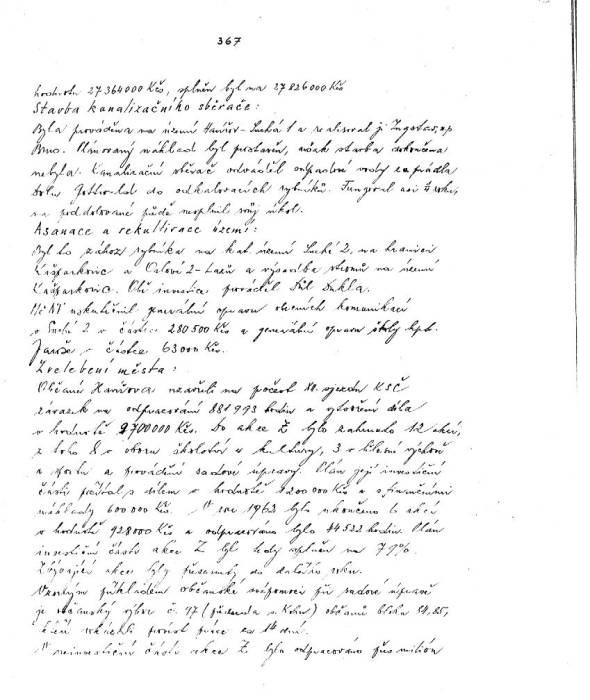 367
hodnotu 27 364 000 Kčs, splněn byl na 27 826 000 Kčs
Stavba kanalizačního sběrače:
Byla prováděna na území Havířov-Suchá 1 a realisoval ji Ingstav, n.p.
Brno. Plánovaný náklad byl prostavěn, avšak stavba dokončena
nebyla. Kanalizační sběrač odváděl odpadní vody z prádla
Dolu Gottwald do odkalovacích rybníků. Fungoval asi 1/4 roku,
na poddolované půdě nesplnil svůj úkol.
Asanace a rekultivace území:
Byl to zához rybníka na kat. území Suchá 2, na hranici
Kašparkovic a Orlové 2-Lazů a výsadba stromů na území
Kašparkovic. Obě investice prováděl Důl Dukla.
MěNV uskutečnil generální opravu obecních komunikací
v Suché 2 v částce 280 500 Kčs a generální opravu školy kpt.
Jaroše v částce 63 000 Kčs.
Zvelebení města:
Občané Havířova uzavřeli na počest XII. sjezdu KSČ
závazek na odpracování 881 993 hodin a vytvoření díla
v hodnotě 9 700 000 Kčs. Do akce Z bylo zahrnuto 12 akcí,
z toho 8 v oboru školství a kultury, 3 v tělesné výchově
a sportu a provádění sadové úpravy. Plán její investiční
části počítal s dílem v hodnotě 1 200 000 Kčs a s finančními
náklady 600 000 Kčs. V roce 1962 bylo ukončeno 6 akcí
v hodnotě 928 000 Kčs a odpracováno bylo 84 522 hodin. Plán
investiční části akce Z byl tedy splněn na 79%.
Zbývající akce byly přesunuty do dalšího roku.
Vzorným příkladem občanské svépomoci při sadové úpravě
je občanský výbor č. 17 občané bloku 84, 85,
kteří práce za 14 dní.
V neinvestiční části akce Z bylo odpracováno přes milión